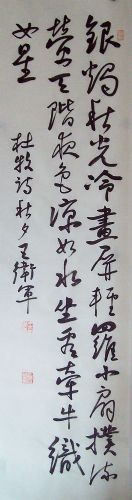 銀燭秋光冷畫屏輕羅小扇撲流
螢天階夜色涼如水坐看牽牛織
女星
杜牧詩秋夕王衛軍